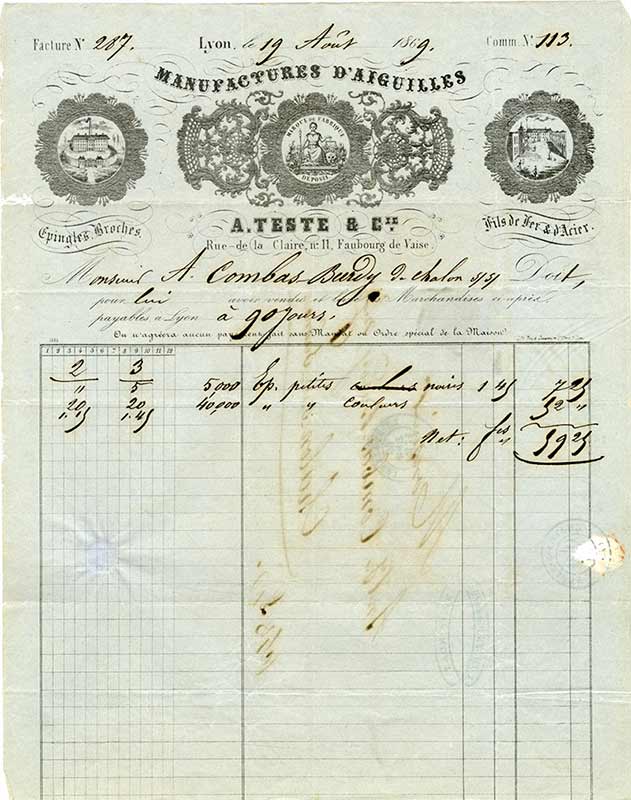 Facture N° 287. Lyon, le 19 Août 1869. Comm. N° 113.
MANUFACTURES D'AIGUILLES
MARQUE DE FABRIQUE
DÉPOSÉE
Epingles, Broches.
A. TESTE & Cie
Fils de Fer & d'Acier.
Rue de la Claire, n° 11, Faubourg de Vaise.
Monsieur A. Combas Burdy de Chalon s/s Doit,
pour lui avoir vendu et Marchandises ci-après
payables à Lyon à 90 jours.
On n'agréera aucun payement fait sans Mandat ou Ordre spécial de la Maison.
1 2 3 4 5 6 7 8 9 10 11 12
2 3
" 5 5,000 Ep. petites couleurs noires 1 45 7 25
20 20 40,000 " " couleurs 52 "
1.15 1.45
Net: fcs 59 25